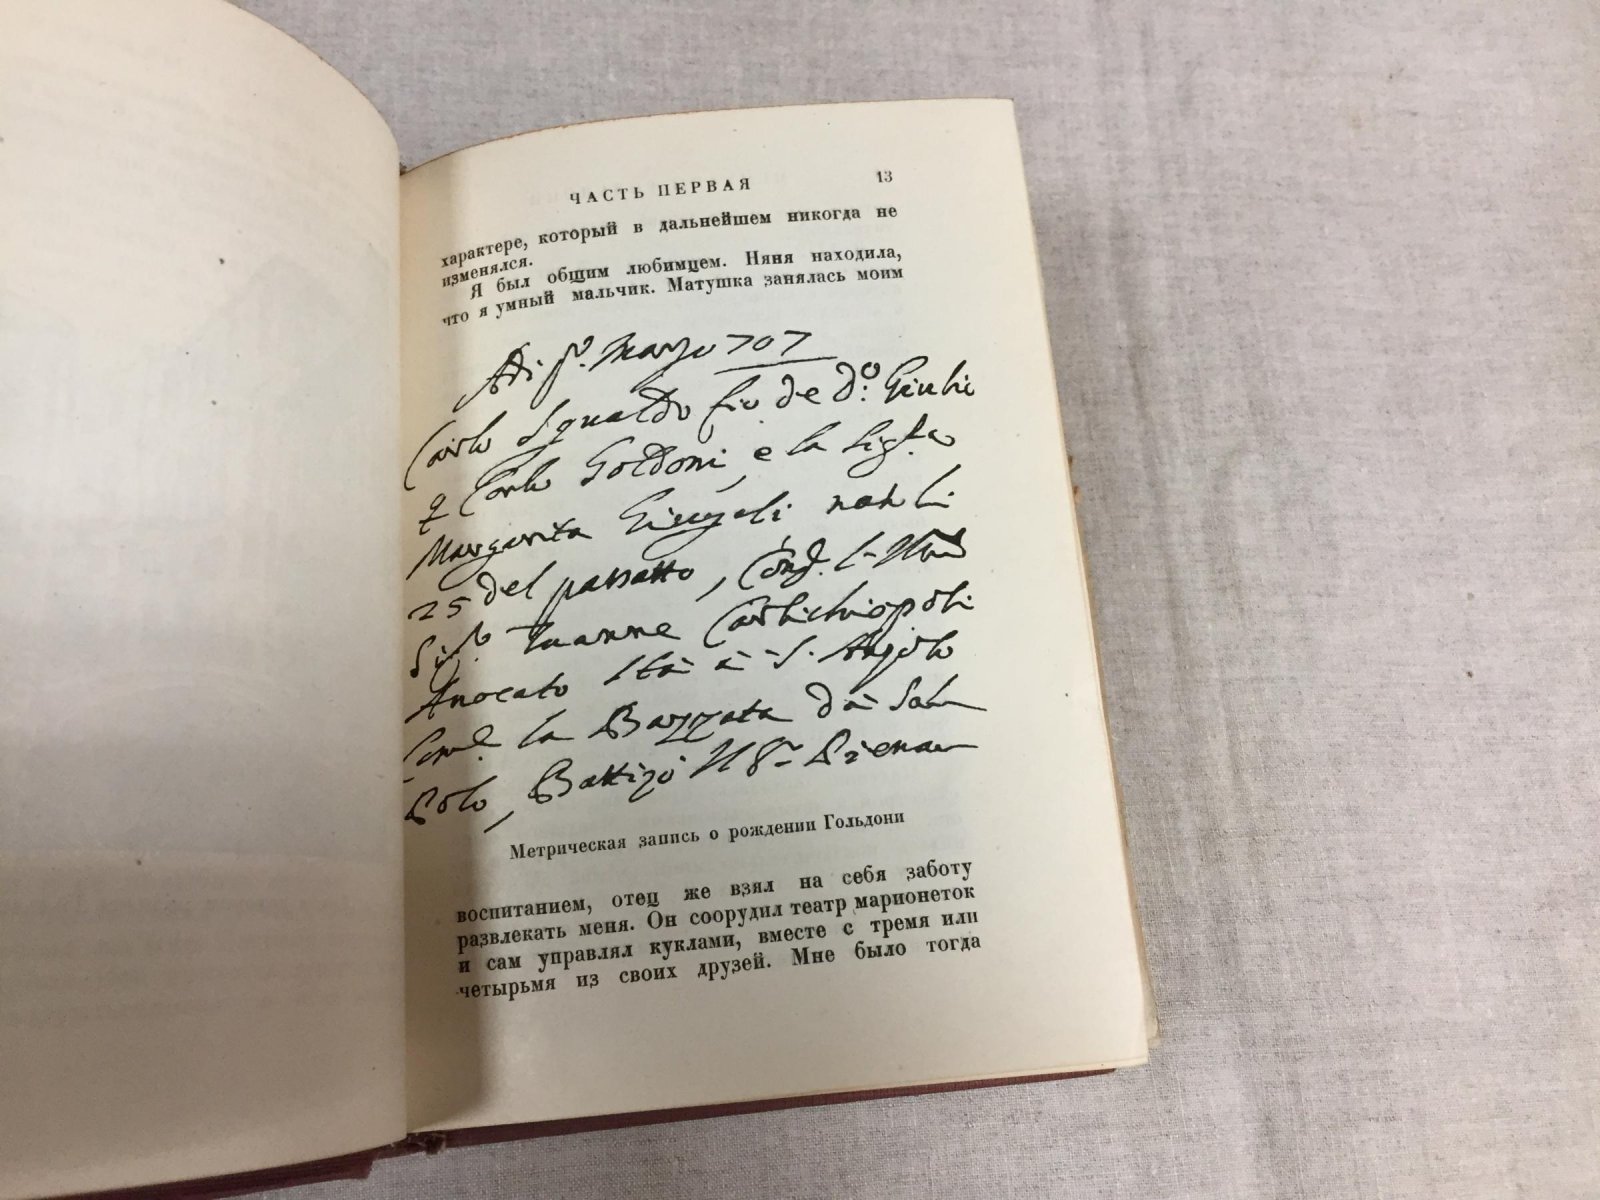 ЧАСТЬ ПЕРВАЯ 13
характере, который в дальнейшем никогда не
изменялся.
Я был общим любимцем. Няня находила,
что я умный мальчик. Матушка занялась моим
Adi pº. Marzo 707
Carlo Osualdo fio de Dº: Giulio
q Carlo Goldoni, e la Sigra
Margarita
25 del passatto,
Sigr. Zuanne
Avocato Stà à S. Anzolo
la Bazzata dà San
Polo, Battizò
Метрическая запись о рождении Гольдони
воспитанием, отец же взял на себя заботу
развлекать меня. Он соорудил театр марионеток
и сам управлял куклами, вместе с тремя или
четырьмя из своих друзей. Мне было тогда